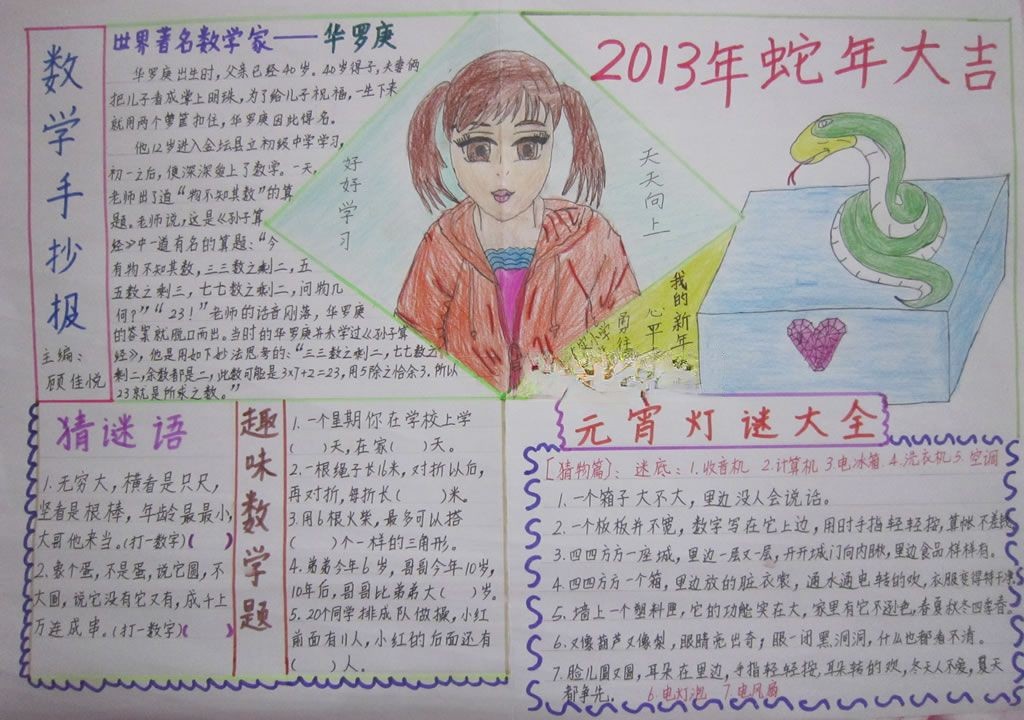 数学手抄报
主编：
顾佳悦
世界著名数学家——华罗庚
华罗庚出生时，父亲已经40岁。40岁得子，夫妻俩
把儿子看成掌上明珠，为了给儿子祝福，一生下来
就用两个箩筐扣住，华罗庚因此得名。
他12岁进入金坛县立初级中学学习，
初一之后，便深深爱上了数学。一天，
老师出了道“物不知其数”的算
题。老师说，这是《孙子算
经》中一道有名的算题：“今
有物不知其数，三三数之剩二，五
五数之剩三，七七数之剩二，问物几
何？”“23！”老师的话音刚落，华罗庚
的答案就脱口而出。当时的华罗庚并未学过《孙子算
经》，他是用如下妙法思考的：“三三数之剩二，七七数之
剩二，余数都是二，此数可能是3×7+2=23，用5除之恰余3，所以
23就是所求之数。”
好好学习
天天向上
2013年蛇年大吉
我的新年
心平
勇往
猜谜语
1.无穷大，横看是只尺，
竖看是根棒，年龄最最小，
大哥他来当。(打一数字)(  )
2.象个蛋，不是蛋，说它圆，不
大圆，说它没有它又有，成千上
万连成串。(打一数字)(  )
趣味数学题
1.一个星期你在学校上学
(  )天，在家(  )天。
2.一根绳子长16米，对折以后，
再对折，每折长(  )米。
3.用6根火柴，最多可以搭
(  )个一样的三角形。
4.弟弟今年6岁，哥哥今年10岁，
10年后，哥哥比弟弟大(  )岁。
5.20个同学排成队做操，小红
前面有11人，小红的后面还有
(  )人。
元宵灯谜大全
[猜物篇]：谜底：1.收音机 2.计算机 3.电冰箱 4.洗衣机 5.空调
1.一个箱子大不大，里边没人会说话。
2.一个板板并不宽，数字写在它上边，用时手指轻轻按，算帐不差
3.四四方方一座城，里边一层又一层，开开城门向内瞅，里边食品样样有。
4.四四方方一个箱，里边放的脏衣裳，通水通电转的欢，衣服变得特干净
5.墙上一个塑料匣，它的功能实在大，家里有它不逊色，春夏秋冬四季春。
6.又像葫芦又像梨，眼睛亮出奇；眼一闭黑洞洞，什么也都看不清。
7.脸儿圆又圆，耳朵在里边，手指轻轻按，耳朵转的欢，冬天人不爱，夏天
都争先。 6.电灯泡 7.电风扇